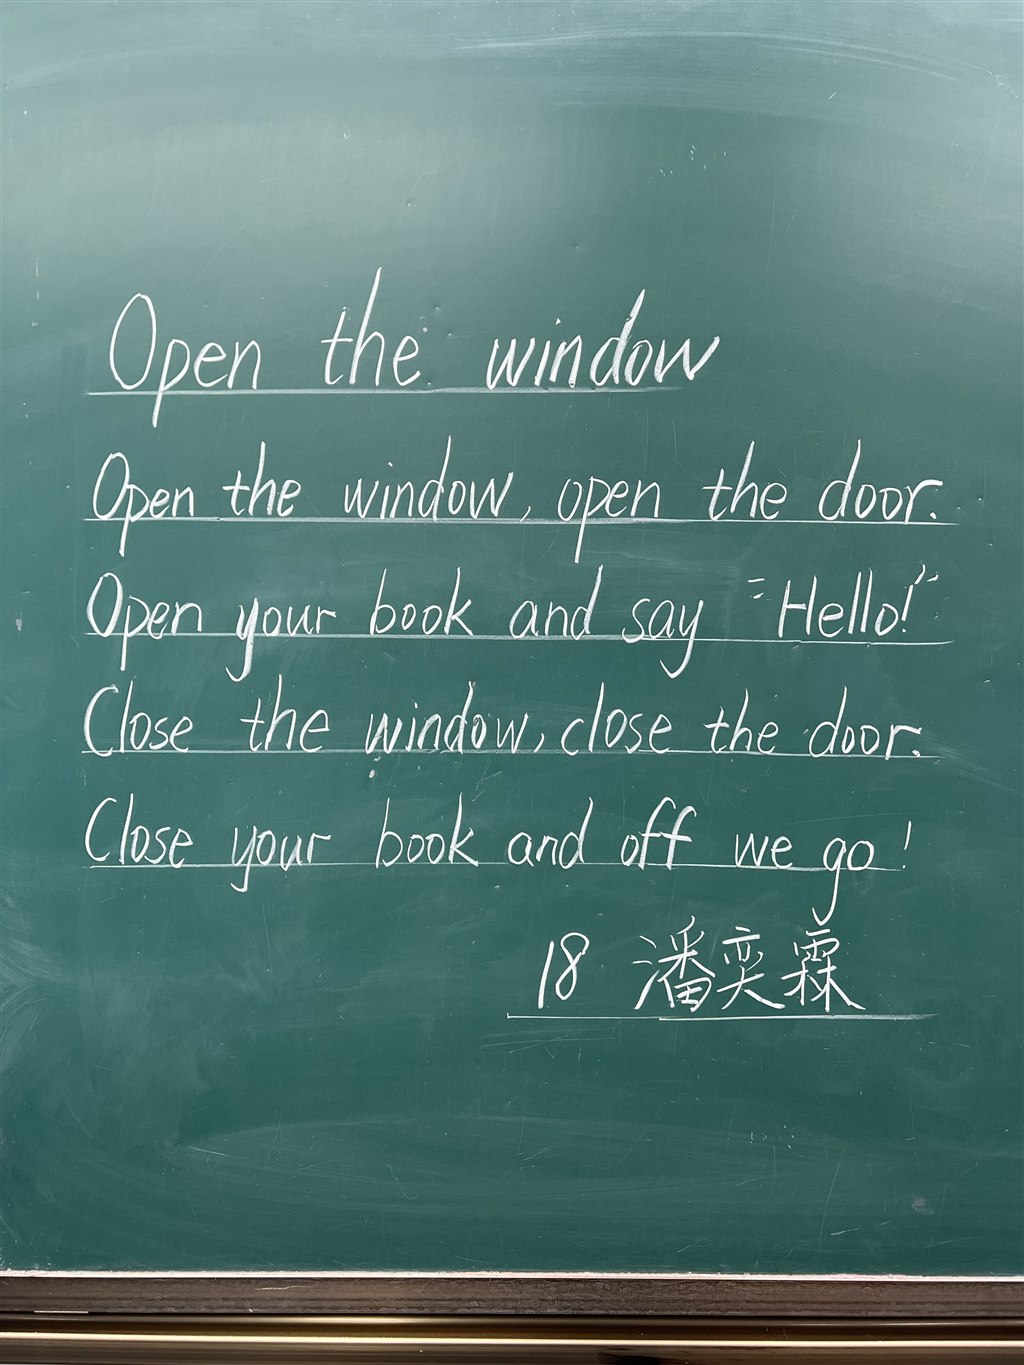 Open the window
Open the window, open the door.
Open your book and say "Hello!"
Close the window, close the door.
Close your book and off we go!
18 潘奕霖